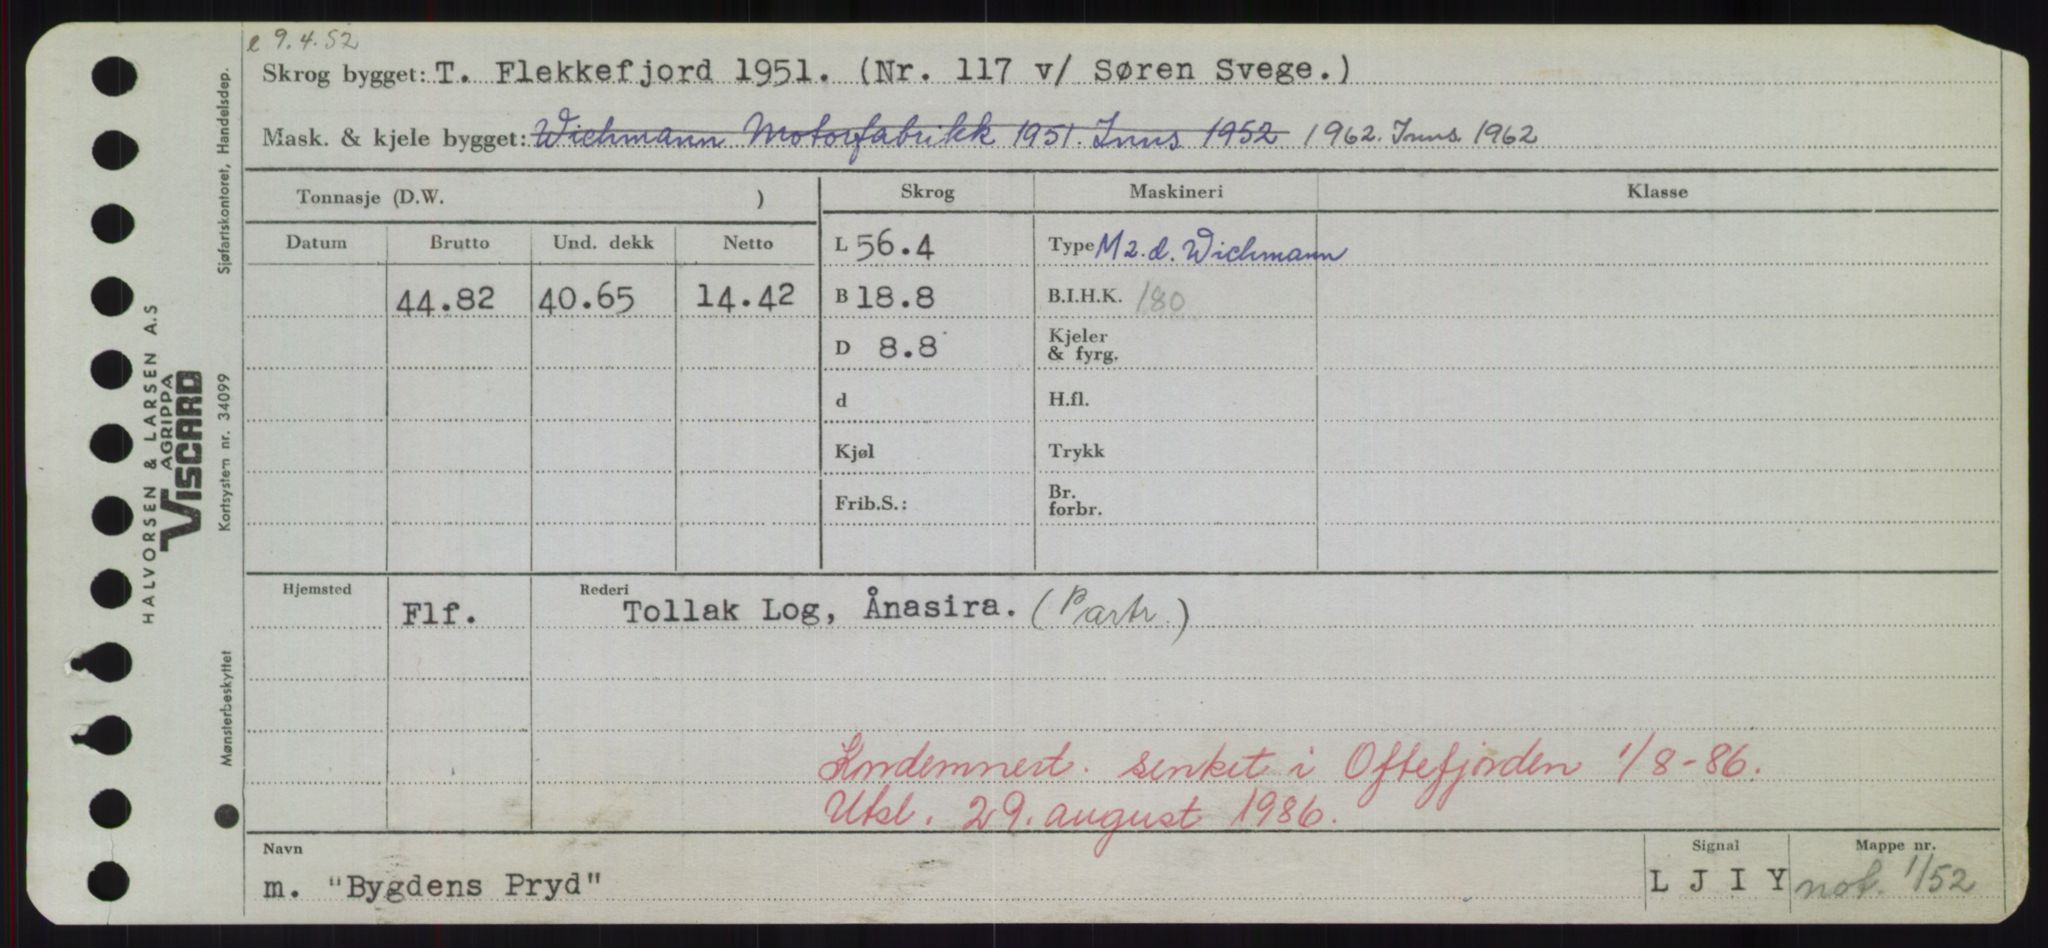 e 9.4.52
Skrog bygget: T. Flekkefjord 1951. (Nr. 117 v/ Søren Svege.)
Mask. & kjele bygget: Wichmann Motorfabrikk 1951. Inns 1952 1962. Inns. 1962
Tonnasje (D.W. )
Skrog Maskineri Klasse
Datum Brutto Und. dekk Netto
L 56.4 Type M 2.d. Wichmann
44.82 40.65 14.42 B 18.8 B.I.H.K. 180
D 8.8 Kjeler
& fyrg.
d H.fl.
Kjøl Trykk
Frib.S.: Br.
forbr.
Hjemsted Rederi
Flf. Tollak Log, Ånasira. (Partr.)
Kondemnert. senket i Oftefjorden 1/8-86.
Utsl. 29. august 1986.
Navn Signal Mappe nr.
m. "Bygdens Pryd" L J I Y not. 1/52
HALVORSEN & LARSEN A.S
AGRIPPA
VISCARD
Mønsterbeskyttet Kortsystem nr. 34099 Sjøfartskontoret, Handelsdep.